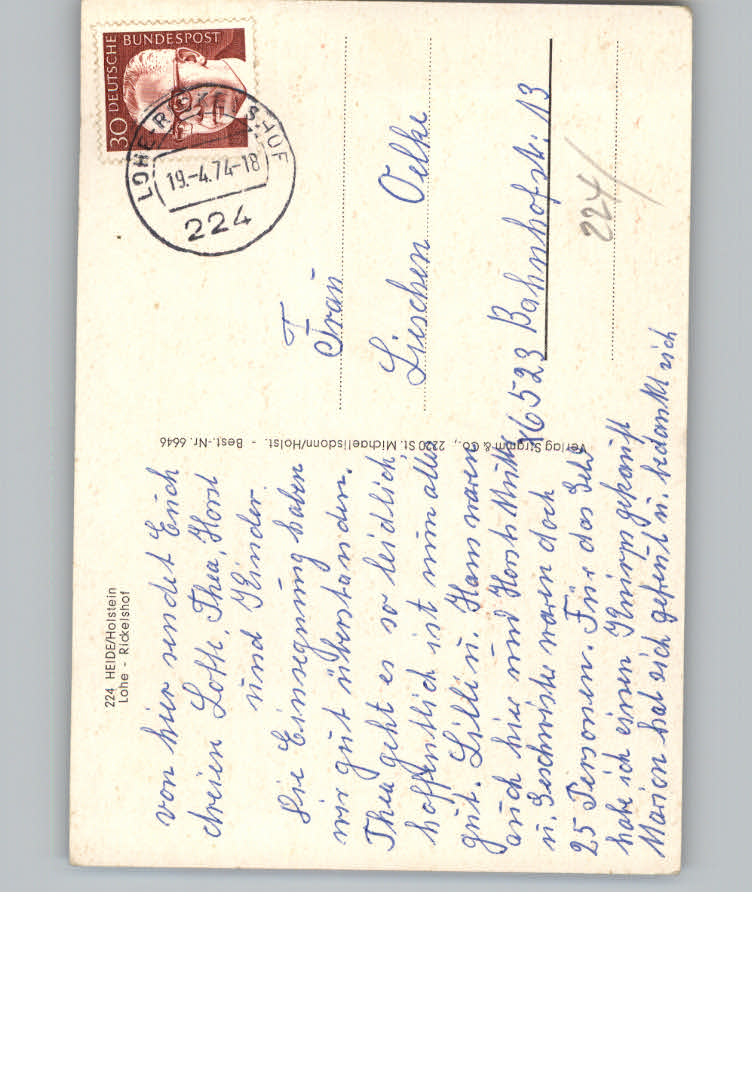 224 HEIDE/Holstein
Lohe - Rickelshof
von hier sendet Euch
Lotte, Thea, Horst
und Kinder.
Die Einsegnung haben
wir gut überstanden.
Thea geht es so leidlich,
hoffentlich ist nun alles
gut. Lilli u. Hans waren
auch hier und Horsts Mutti
u. Geschwister waren doch
25 Personen. Für das Geld
habe ich einen Knirps gekauft
Marion hat sich gefreut u. bedankt sich
Verlag Stramm & Co., 2220 St. Michaelisdonn/Holst. - Best.-Nr. 6646
DEUTSCHE BUNDESPOST
30
LOHE-RICKELSHOF
19.-4.74-18
224
Frau
Lieschen Oelke
6523 Bahnhofstr. 13
224/